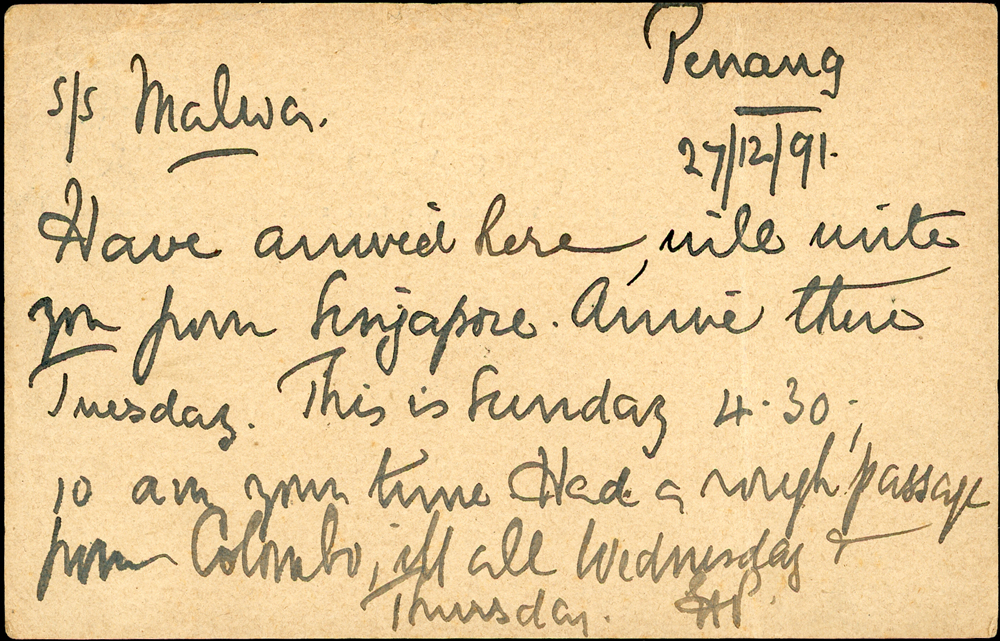 Penang
s/s Malwa.
27/12/91.
Have arrived here, will write
you from Singapore. Arrive there
Tuesday. This is Sunday 4.30;
10 am your time Had a rough passage
from Colombo, ill all Wednesday &
Thursday.